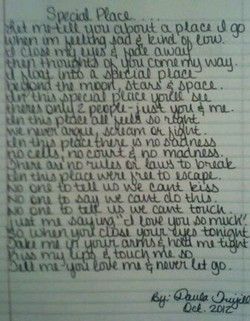 Special Place....
Let me tell you about a place I go
when im feeling sad & kind of low.
I close my eyes & fade away
then thoughts of you come my way.
I float into a special place
beyond the moon, stars & space.
In this special place you'll see
theres only 2 people - just you & me.
In this place all feels so right
we never argue, scream or fight.
In this place there is no sadness
no cells, no court & no madness.
There are no rules or laws to break
In this place were free to escape.
No one to tell us we cant kiss
No one to say we cant do this.
No one to tell us we cant touch
just me saying "I love you so much"
So when you close your eyes tonight
Take me in your arms & hold me tight
Kiss my lips & touch me so
Tell me you love me & never let go.
By: Paula
Oct. 2012